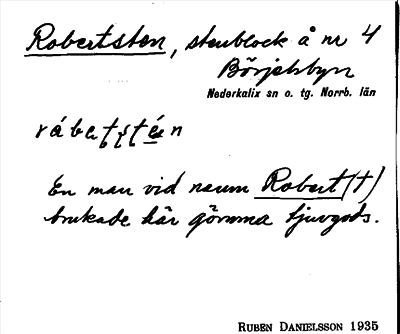 Robertsten, stenblock å nr 4
Börjelsbyn
Nederkalix sn o. tg. Norrb. län
En man vid namn Robert (†)
brukade här gömma tjuvgods.
RUBEN DANIELSSON 1935